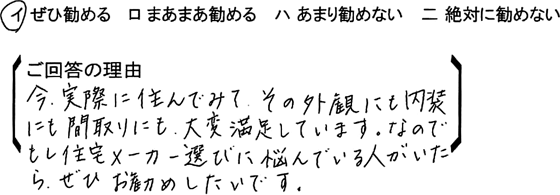 イ ぜひ勧める ロ まあまあ勧める ハ あまり勧めない ニ 絶対に勧めない
ご回答の理由
今、実際に住んでみて、その外観にも内装
にも間取りにも、大変満足しています。なので
もし住宅メーカー選びに悩んでいる人がいた
ら、ぜひお勧めしたいです。